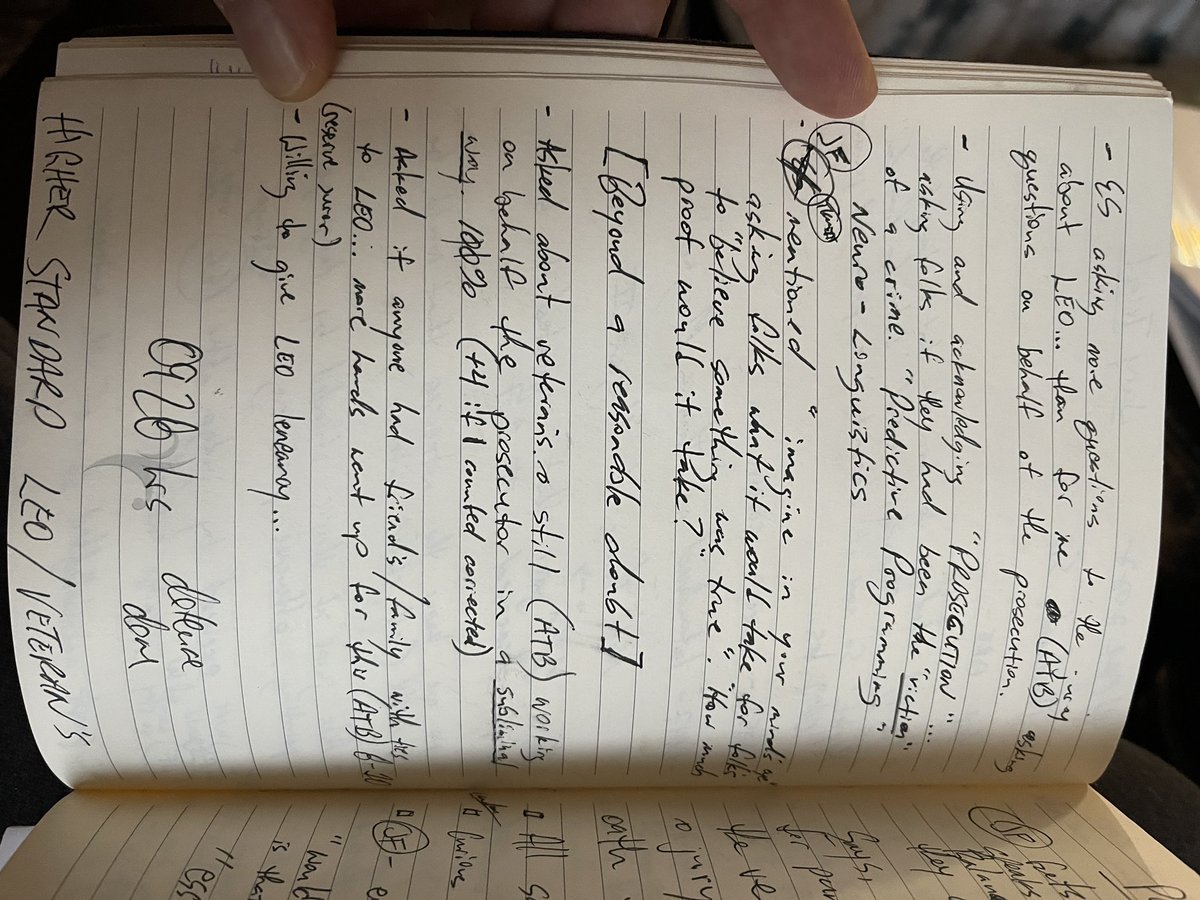 - ES asking more questions to the jury
about LEO... than for me (ATB) asking
questions on behalf of the prosecution.
- Using and acknowledging "PROSECUTION"...
asking folks if they had been the "victim"
of a crime. "Predictive Programming"
Neuro-Longuistics
JF
- mentioned "imagine in your mind's eye"
asking folks what it would take for folks
to "believe something was true". "How much
proof would it take?"
[Beyond a reasonable doubt]
- Asked about veterans still (ATB) working
on behalf the prosecutor in a subliminal
way, 100% (+4 if I counted corrected)
- Asked if anyone had friend's/family with ties
to LEO... more hands went up for this (ATB) 6-10
(reserve juror)
- Willing to give LEO leneancy...
0926 hrs defense
done
HIGHER STANDARD LEO/VETERAN'S
JF
they
the ve
jury
oath
All
Curious
JF -
"would
is that